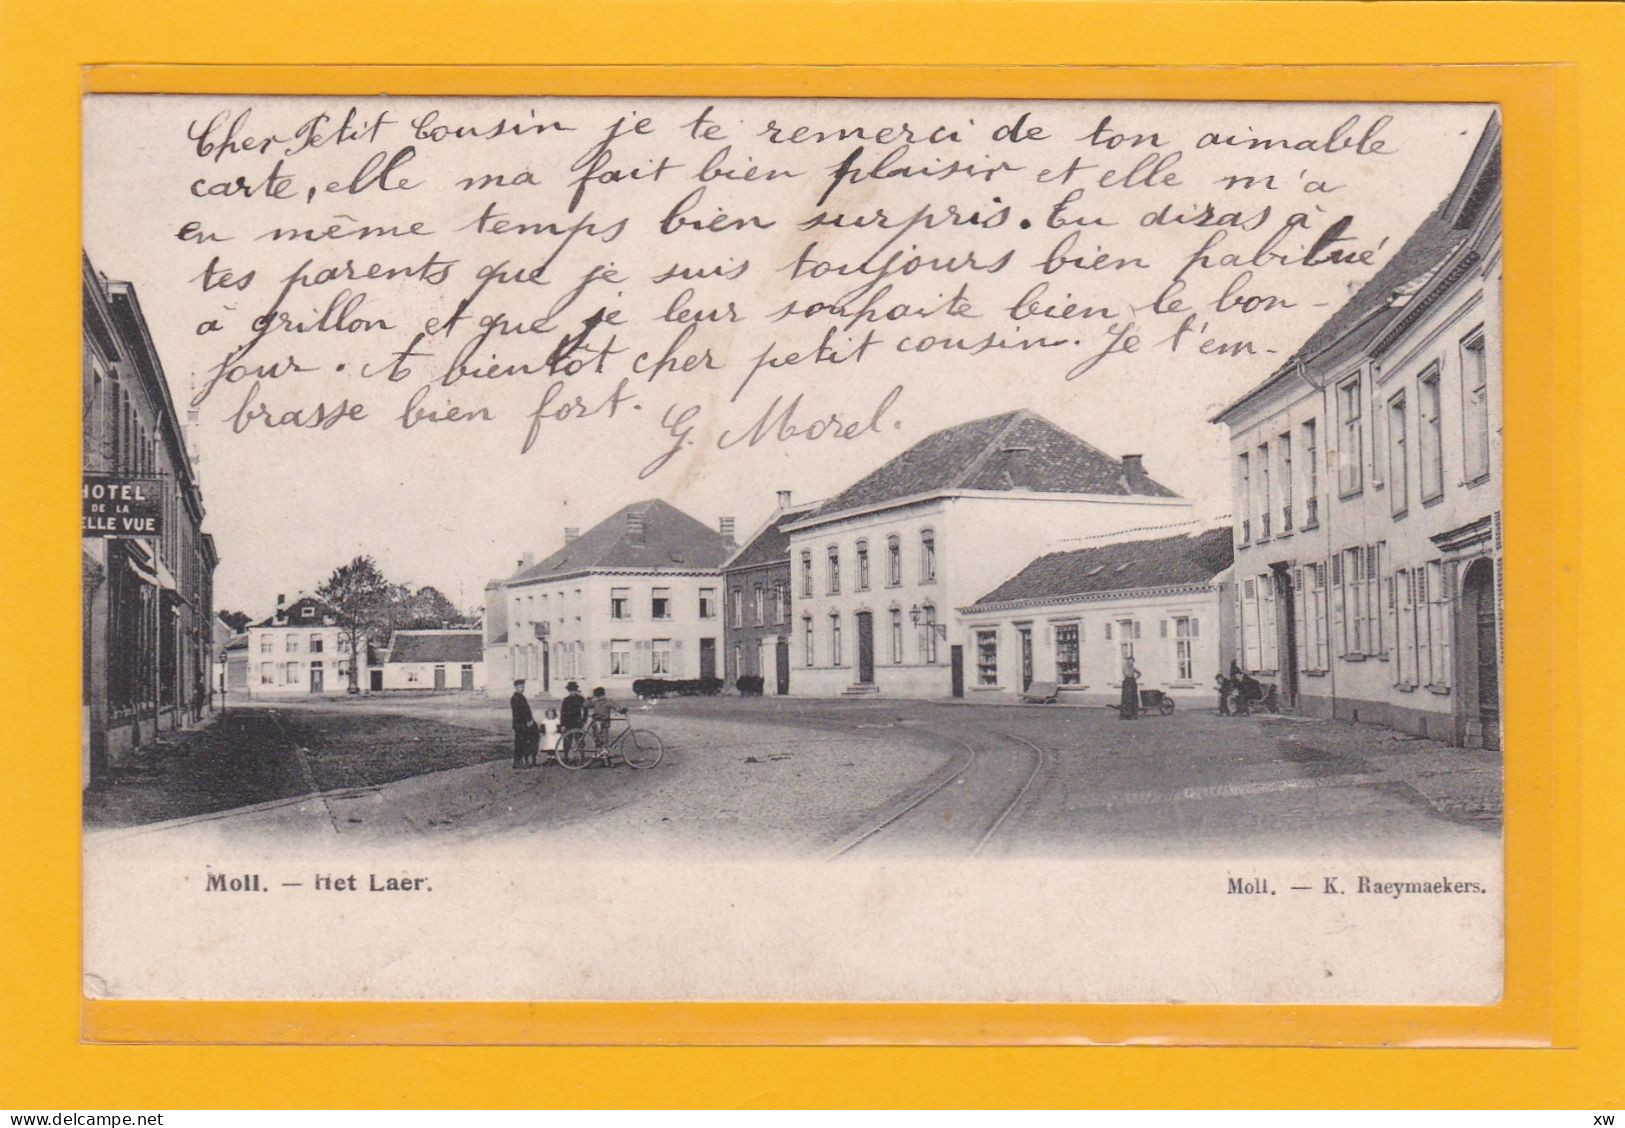 Cher Petit Cousin je te remerci de ton aimable
carte, elle ma fait bien plaisir et elle m'a
en même temps bien surpris. Tu diras à
tes parents que je suis toujours bien habitué
à grillon et que je leur souhaite bien le bon-
jour. A bientôt cher petit cousin. Je t'em-
brasse bien fort.
G. Morel.
HOTEL
DE LA
ELLE VUE
Moll. — Het Laer.
Moll. — K. Raeymaekers.
delcampe.net
xw